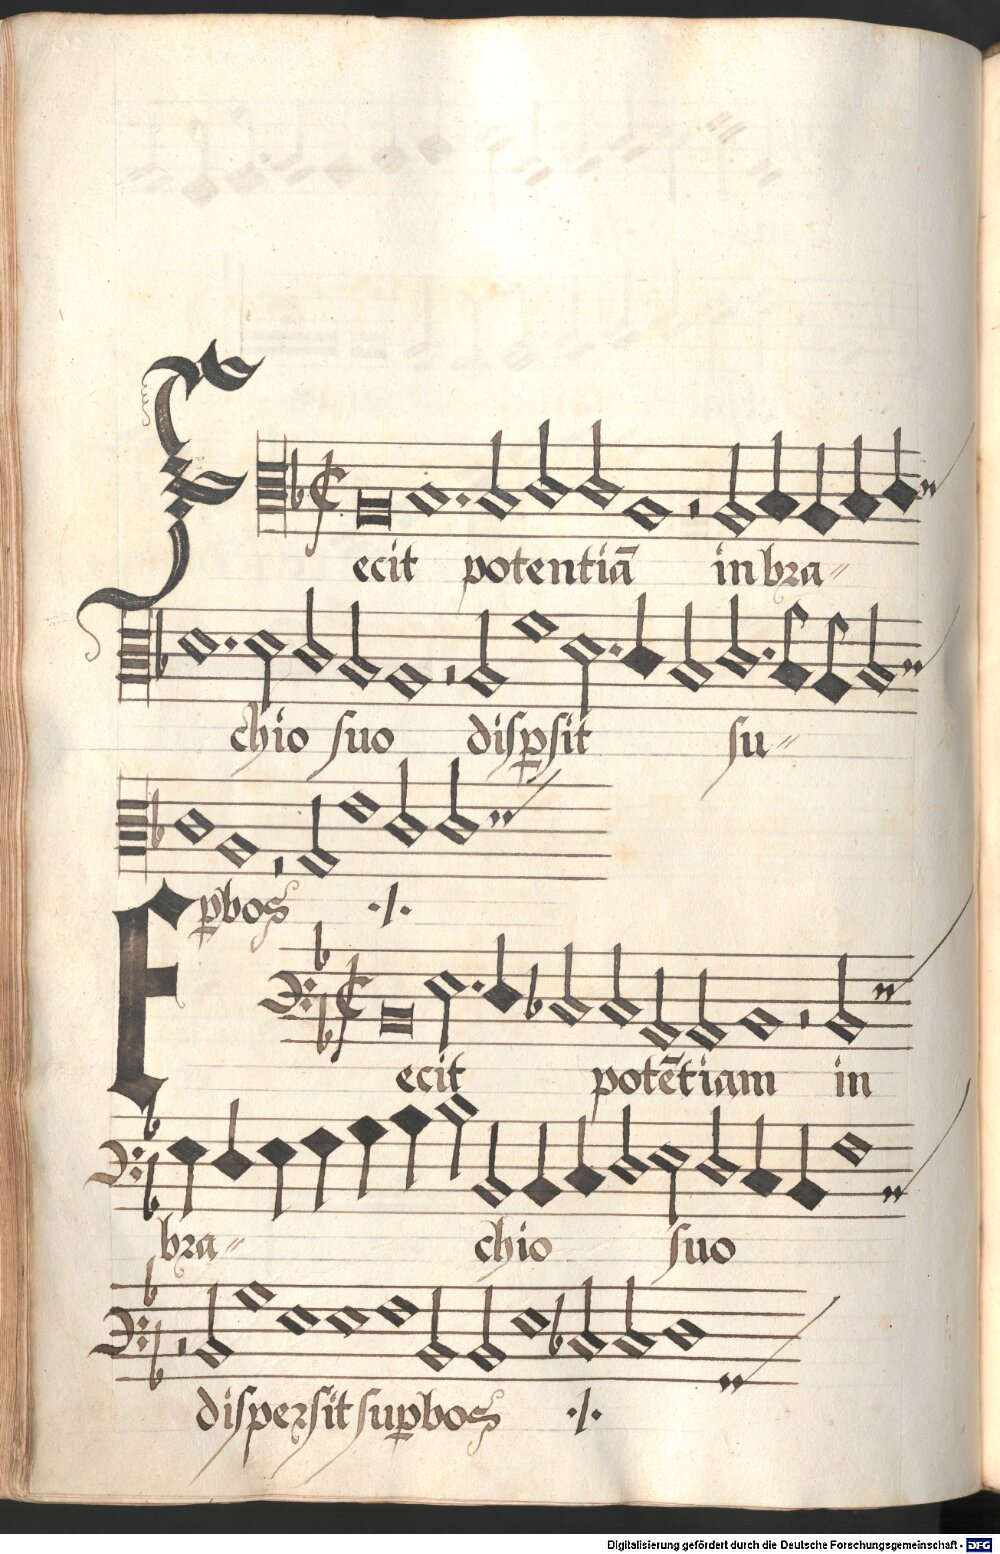 Fecit potentiā in bra〃
chio suo dispsit su〃
pbos ·/·
Fecit potētiam in
bra〃 chio suo
dispersit supbos ·/·
Digitalisierung gefördert durch die Deutsche Forschungsgemeinschaft - DFG